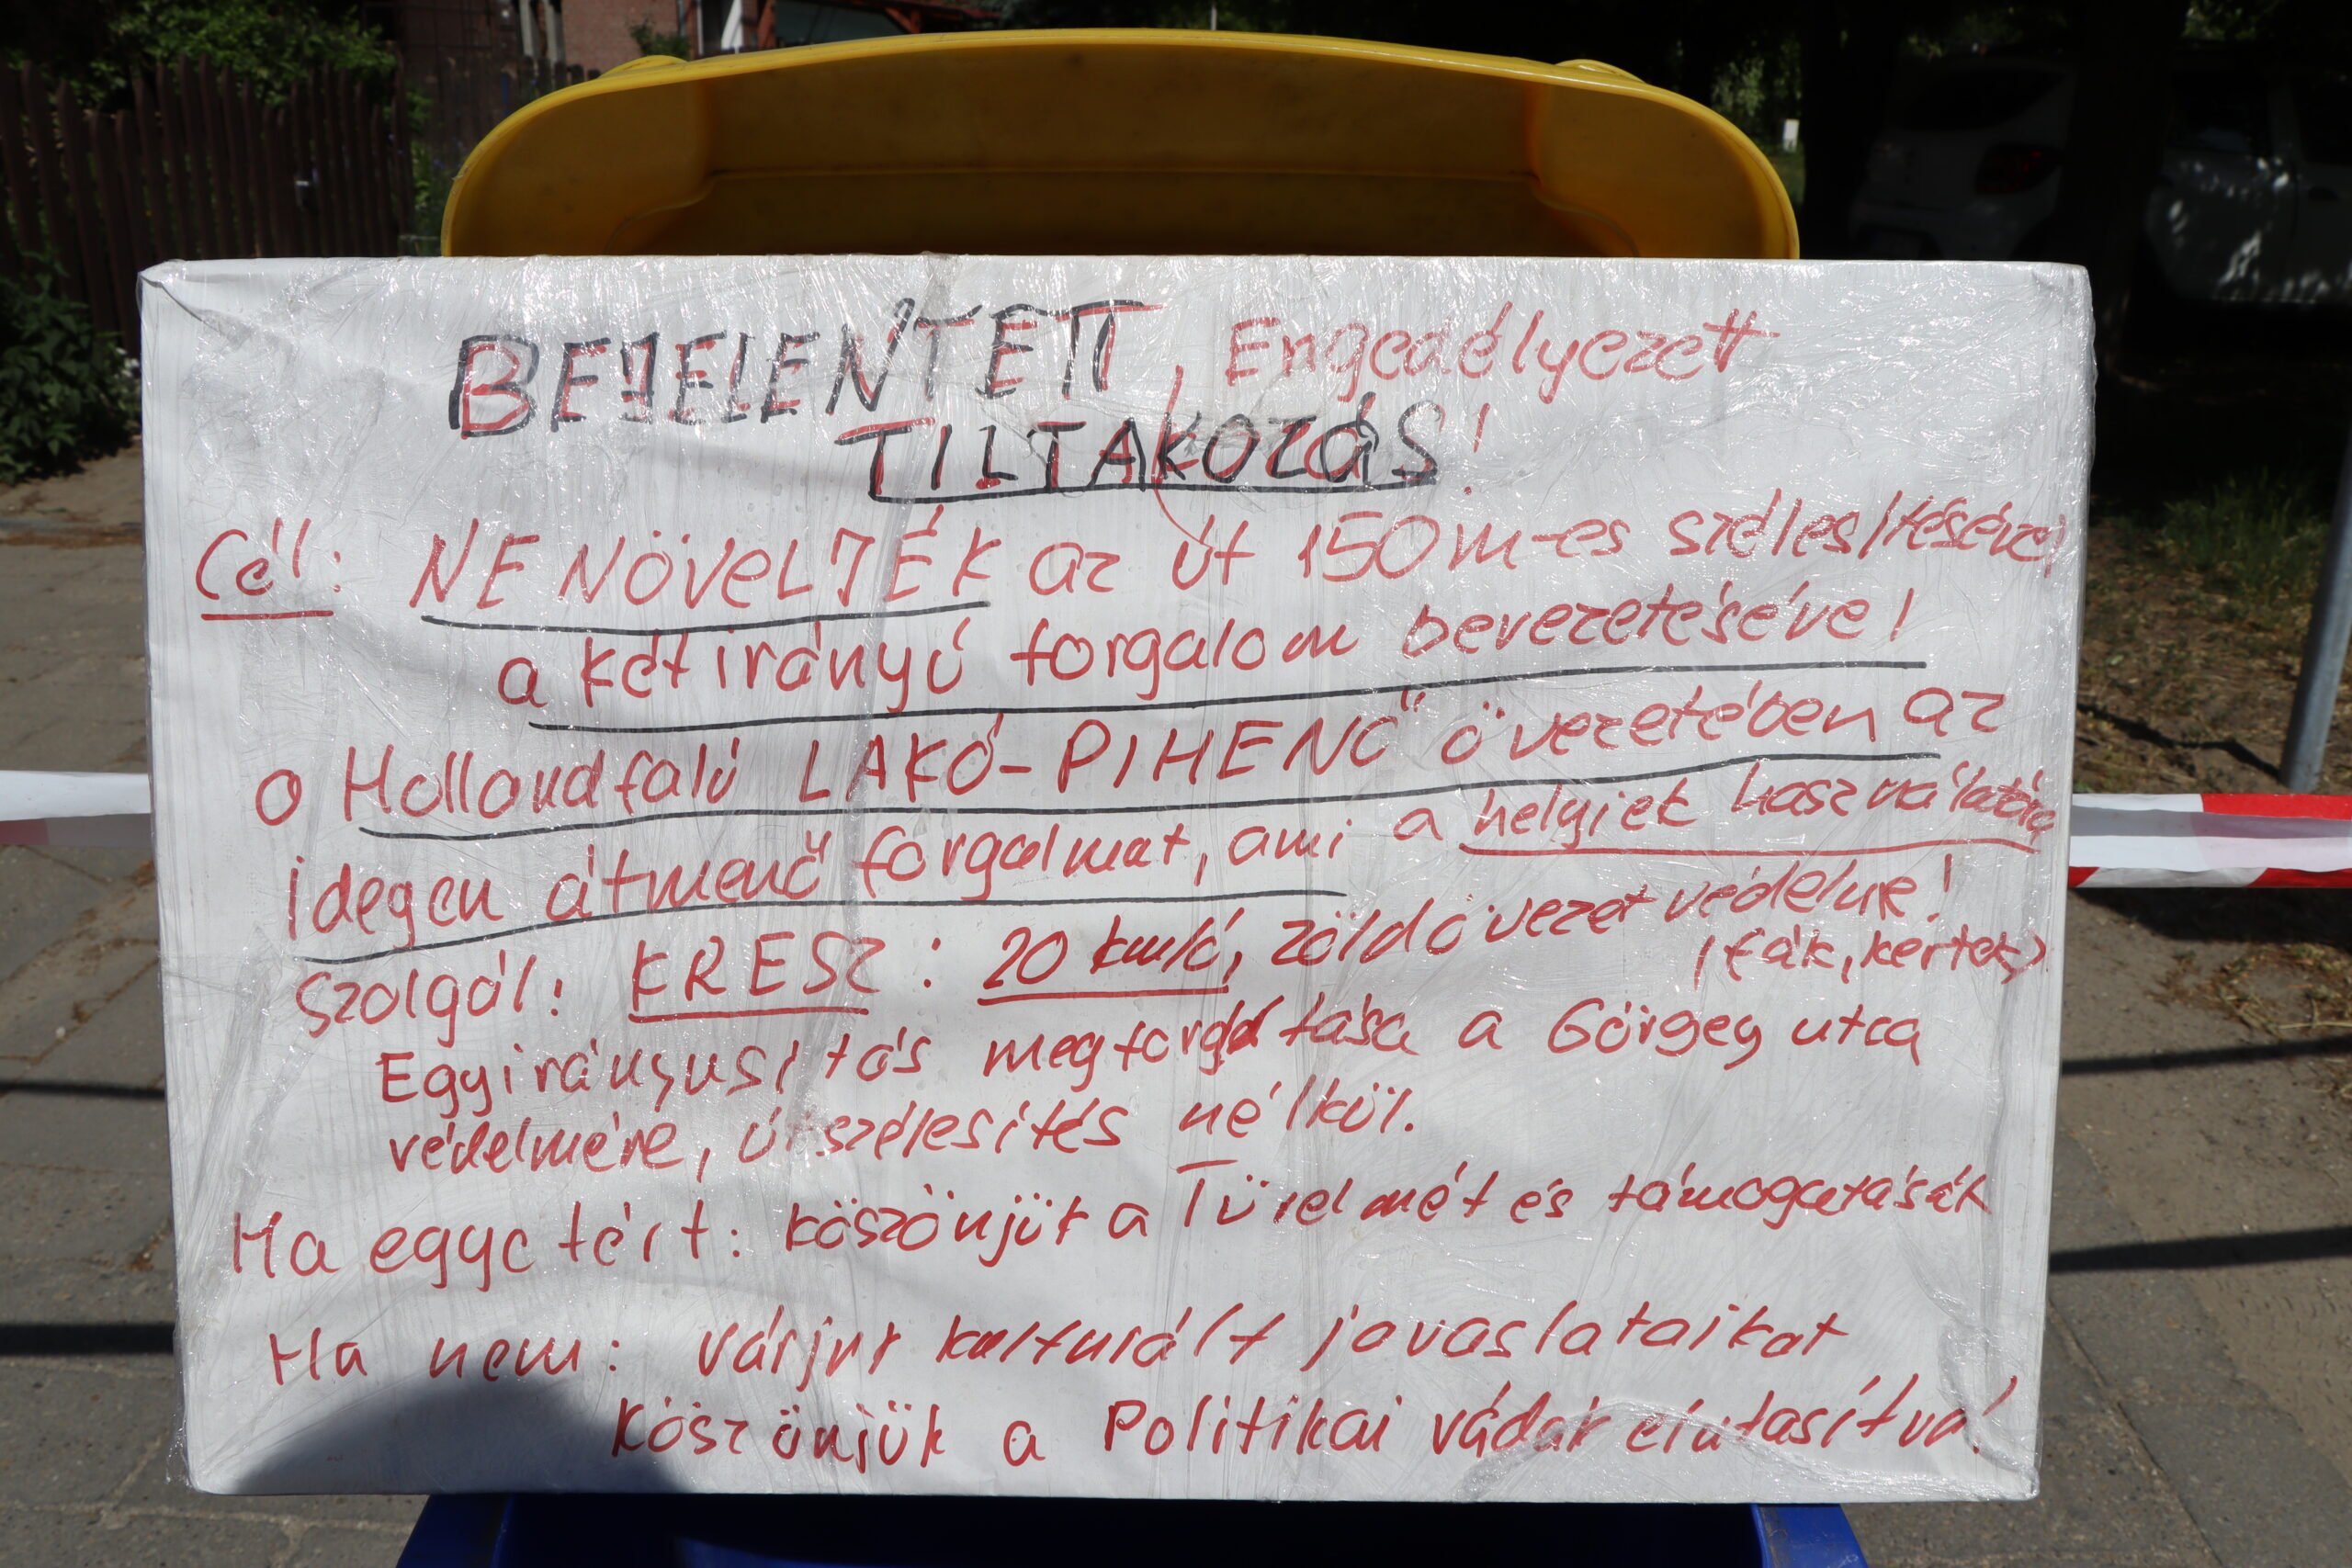 BEJELENTETT, Engedélyezett
TILTAKOZÁS!
Cél: NE NÖVELJÉK az út 150m-es szélesítésével
a kétirányú forgalom bevezetéséve!
o Hollandfalú LAKÓ-PIHENŐ övezetében az
idegen átmenő forgalmat, ami a helyiek használatára
szolgál! KRESZ: 20 km/ó, zöldövezet védelme!
(fák, kertek)
Egyirányusítás megfordítása a Görgey utca
védelmére, útszélesítés nélkül.
Ha egyetért: köszönjük a Türelmét és támogatását
Ha nem: várjuk kulturált javaslataikat
Köszönjük a Politikai vádak elutasítva!